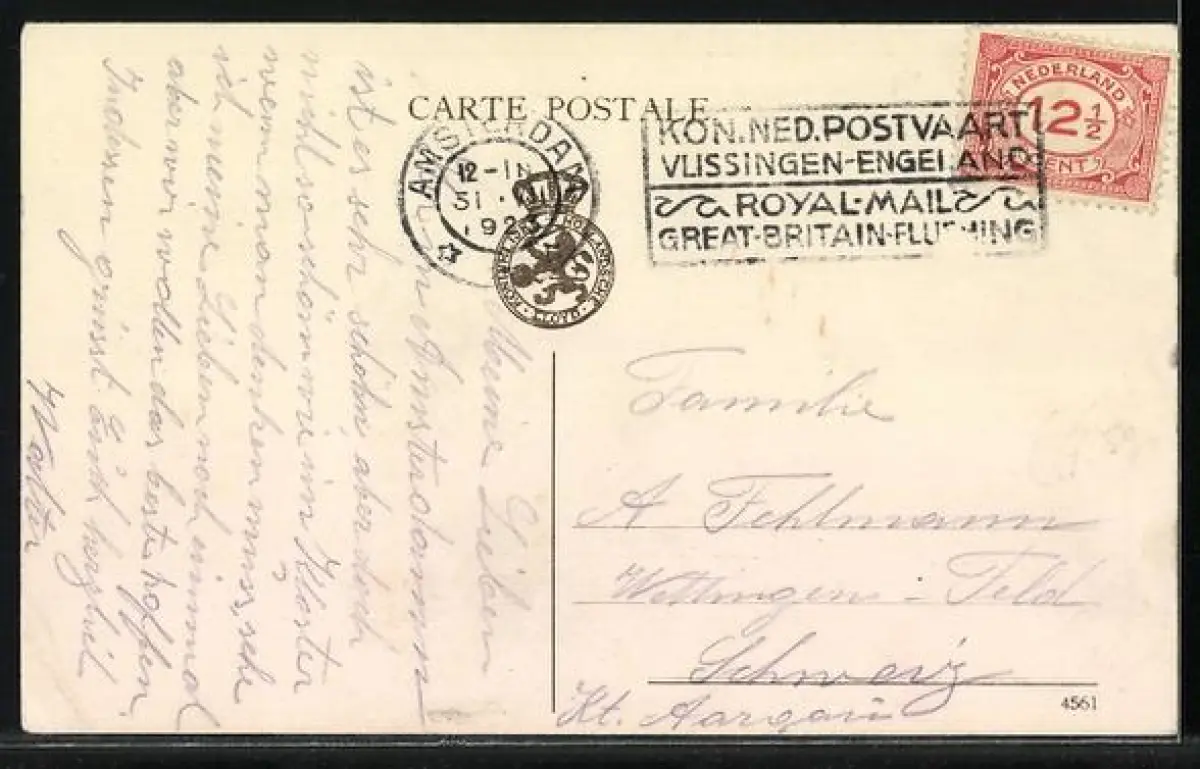 CARTE POSTALE
AMSTERDAM
12-1N
31
192
KON. NED. POSTVAART
VLISSINGEN-ENGELAND
ROYAL-MAIL
GREAT-BRITAIN-FLUSHING
NEDERLAND
12½
CENT
LLOYD
Meine Lieben
Amsterdamm
ist es sehr schöhn aber doch
nicht so schön wie im Kloster
wenn man denken muss, sehe
ich meine Lieben noch einmal
aber wir wollen das beste hoffen.
Indessen grüsst Euch herzlich
Walter
Familie
A Fehlmann
Wettingen-Feld
Schweiz
Kt. Aargau
4561